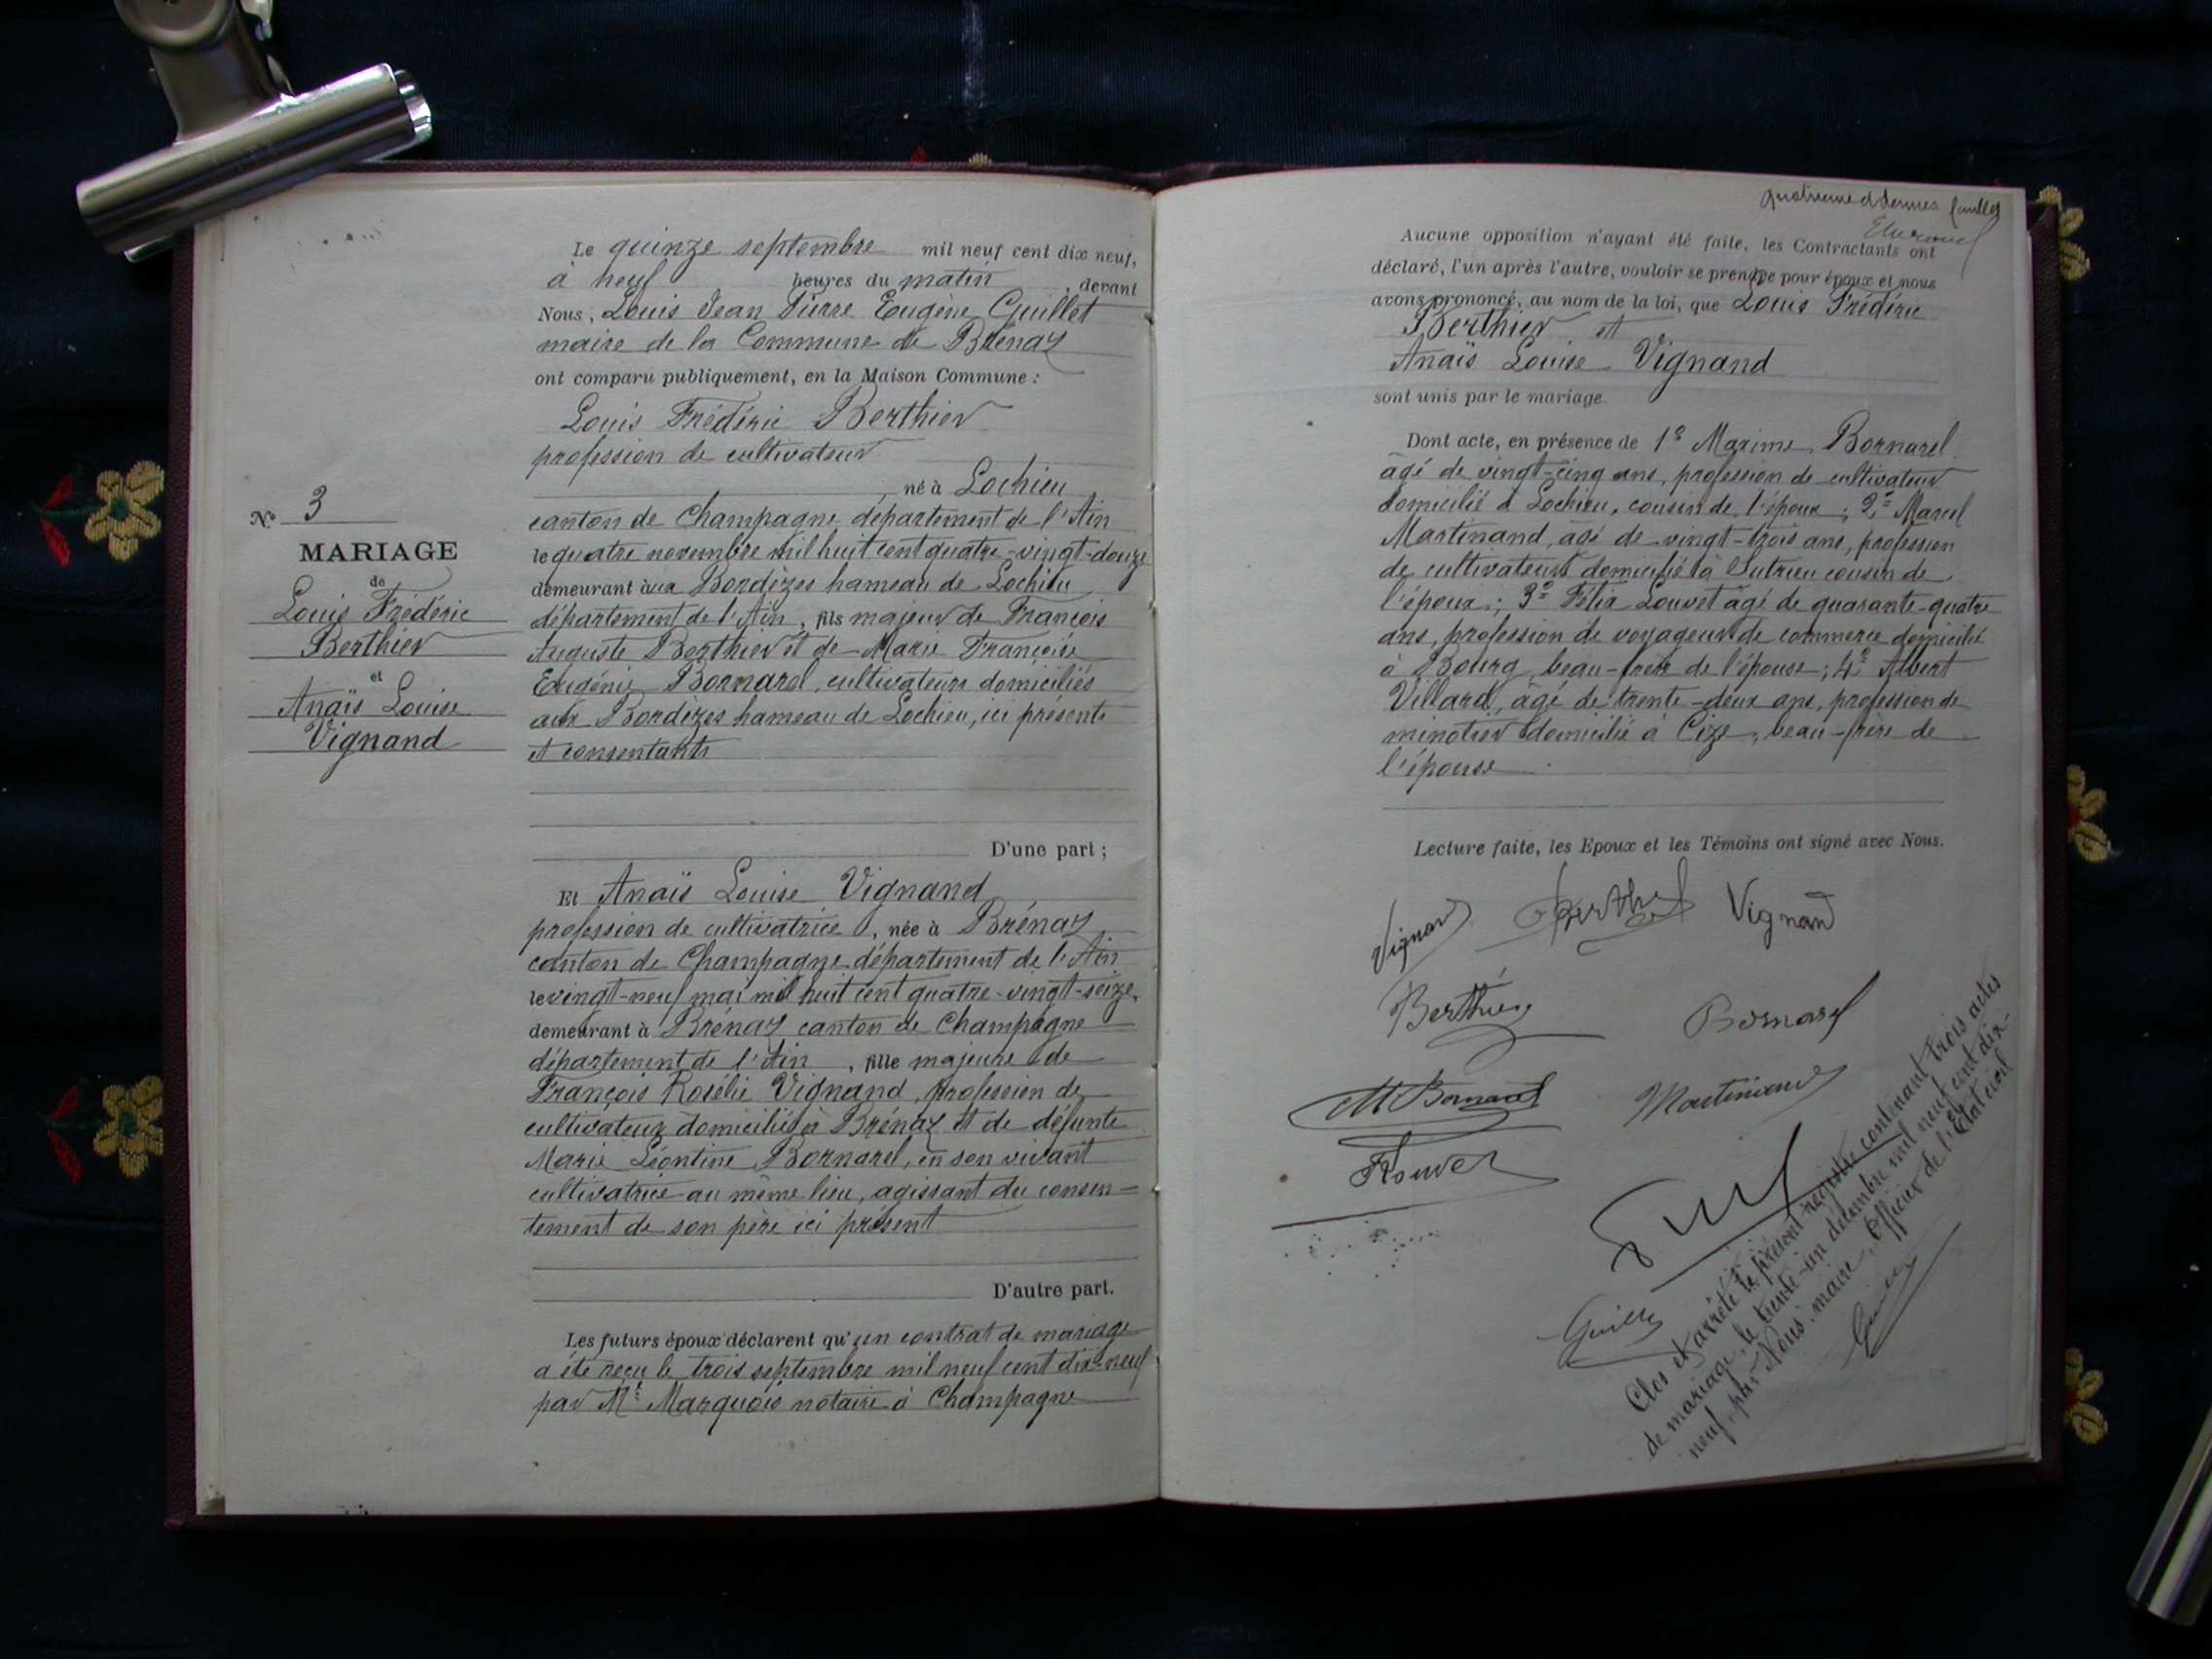 N° 3
MARIAGE
de
Louis Frédéric
Berthier
et
Anaïs Louise
Vignand
Le quinze septembre mil neuf cent dix neuf,
à neuf heures du matin, devant
Nous, Louis Jean Pierre Eugène Guillet
maire de la Commune de Brénaz
ont comparu publiquement, en la Maison Commune :
Louis Frédéric Berthier
profession de cultivateur
, né à Lochieu
canton de Champagne département de l'Ain
le quatre novembre mil huit cent quatre-vingt-douze
demeurant aux Bordèzes hameau de Lochieu
département de l'Ain, fils majeur de François
Auguste Berthier et de Marie Françoise
Eugénie Bornarel, cultivateurs domiciliés
aux Bordèzes hameau de Lochieu, ici présents
et consentants
D'une part ;
Et Anaïs Louise Vignand
profession de cultivatrice, née à Brénaz
canton de Champagne département de l'Ain
le vingt-neuf mai mil huit cent quatre-vingt-seize,
demeurant à Brénaz canton de Champagne
département de l'Ain, fille majeure de
François Rosélie Vignand, profession de
cultivateur domicilié à Brénaz et de défunte
Marie Léontine Bornarel, en son vivant
cultivatrice au même lieu, agissant du consen=
tement de son père ici présent
D'autre part.
Les futurs époux déclarent qu'un contrat de mariage
a été reçu le trois septembre mil neuf cent dix-neuf
par Me Marquois notaire à Champagne
quatrième et dernier feuillet
Aucune opposition n'ayant été faite, les Contractants ont
déclaré, l'un après l'autre, vouloir se prendre pour époux et nous
avons prononcé, au nom de la loi, que Louis Frédéric
Berthier et
Anaïs Louise Vignand
sont unis par le mariage.
Dont acte, en présence de 1° Maxime Bornarel
âgé de vingt-cinq ans, profession de cultivateur
domicilié à Lochieu, cousin de l'époux ; 2° Marcel
Martinand, âgé de vingt-trois ans, profession
de cultivateur domicilié à Sutrieu cousin de
l'époux ; 3° Félix Louvet âgé de quarante-quatre
ans, profession de voyageur de commerce domicilié
à Bourg, beau-frère de l'épouse ; 4° Albert
Villard, âgé de trente-deux ans, profession de
minotier domicilié à Cize, beau-frère de
l'épouse
Lecture faite, les Epoux et les Témoins ont signé avec Nous.
Vignand Berthier Vignand
Berthier Bornarel
M Bornarel Martinand
F Louvet
Guillet
Clos et arrêté le présent registre contenant trois actes
de mariage, le trente-un décembre mil neuf cent dix-
neuf, par Nous, maire, Officier de l'Etat civil
Guillet